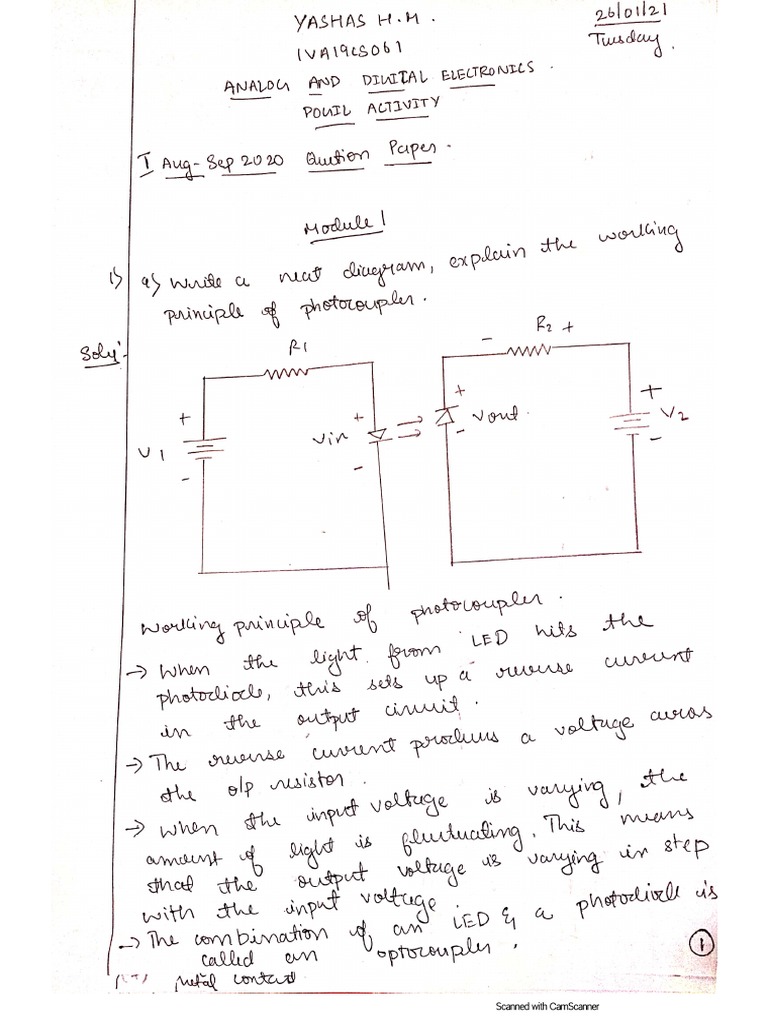 YASHAS H.M.
26/01/21
1VA19CS061
Tuesday.
ANALOG AND DIGITAL ELECTRONICS.
POGIL ACTIVITY
I Aug-Sep 2020 Qustion Paper.
Module 1
1) a) Write a neat diagram, explain the working
principle of photocoupler.
Soln:-
R1
- R2 +
+ V1 -
+ Vin -
+ Vout -
+ V2 -
Working principle of photocoupler.
→ When the light from LED hits the
photodiode, this sets up a reverse current
in the output circuit.
→ The reverse current produces a voltage across
the o/p resistor.
→ When the input voltage is varying, the
amount of light is fluctuating. This means
that the output voltage is varying in step
with the input voltage.
→ The combination of an LED & a photodiode is
called an optocoupler.
1
metal contact
Scanned with CamScanner